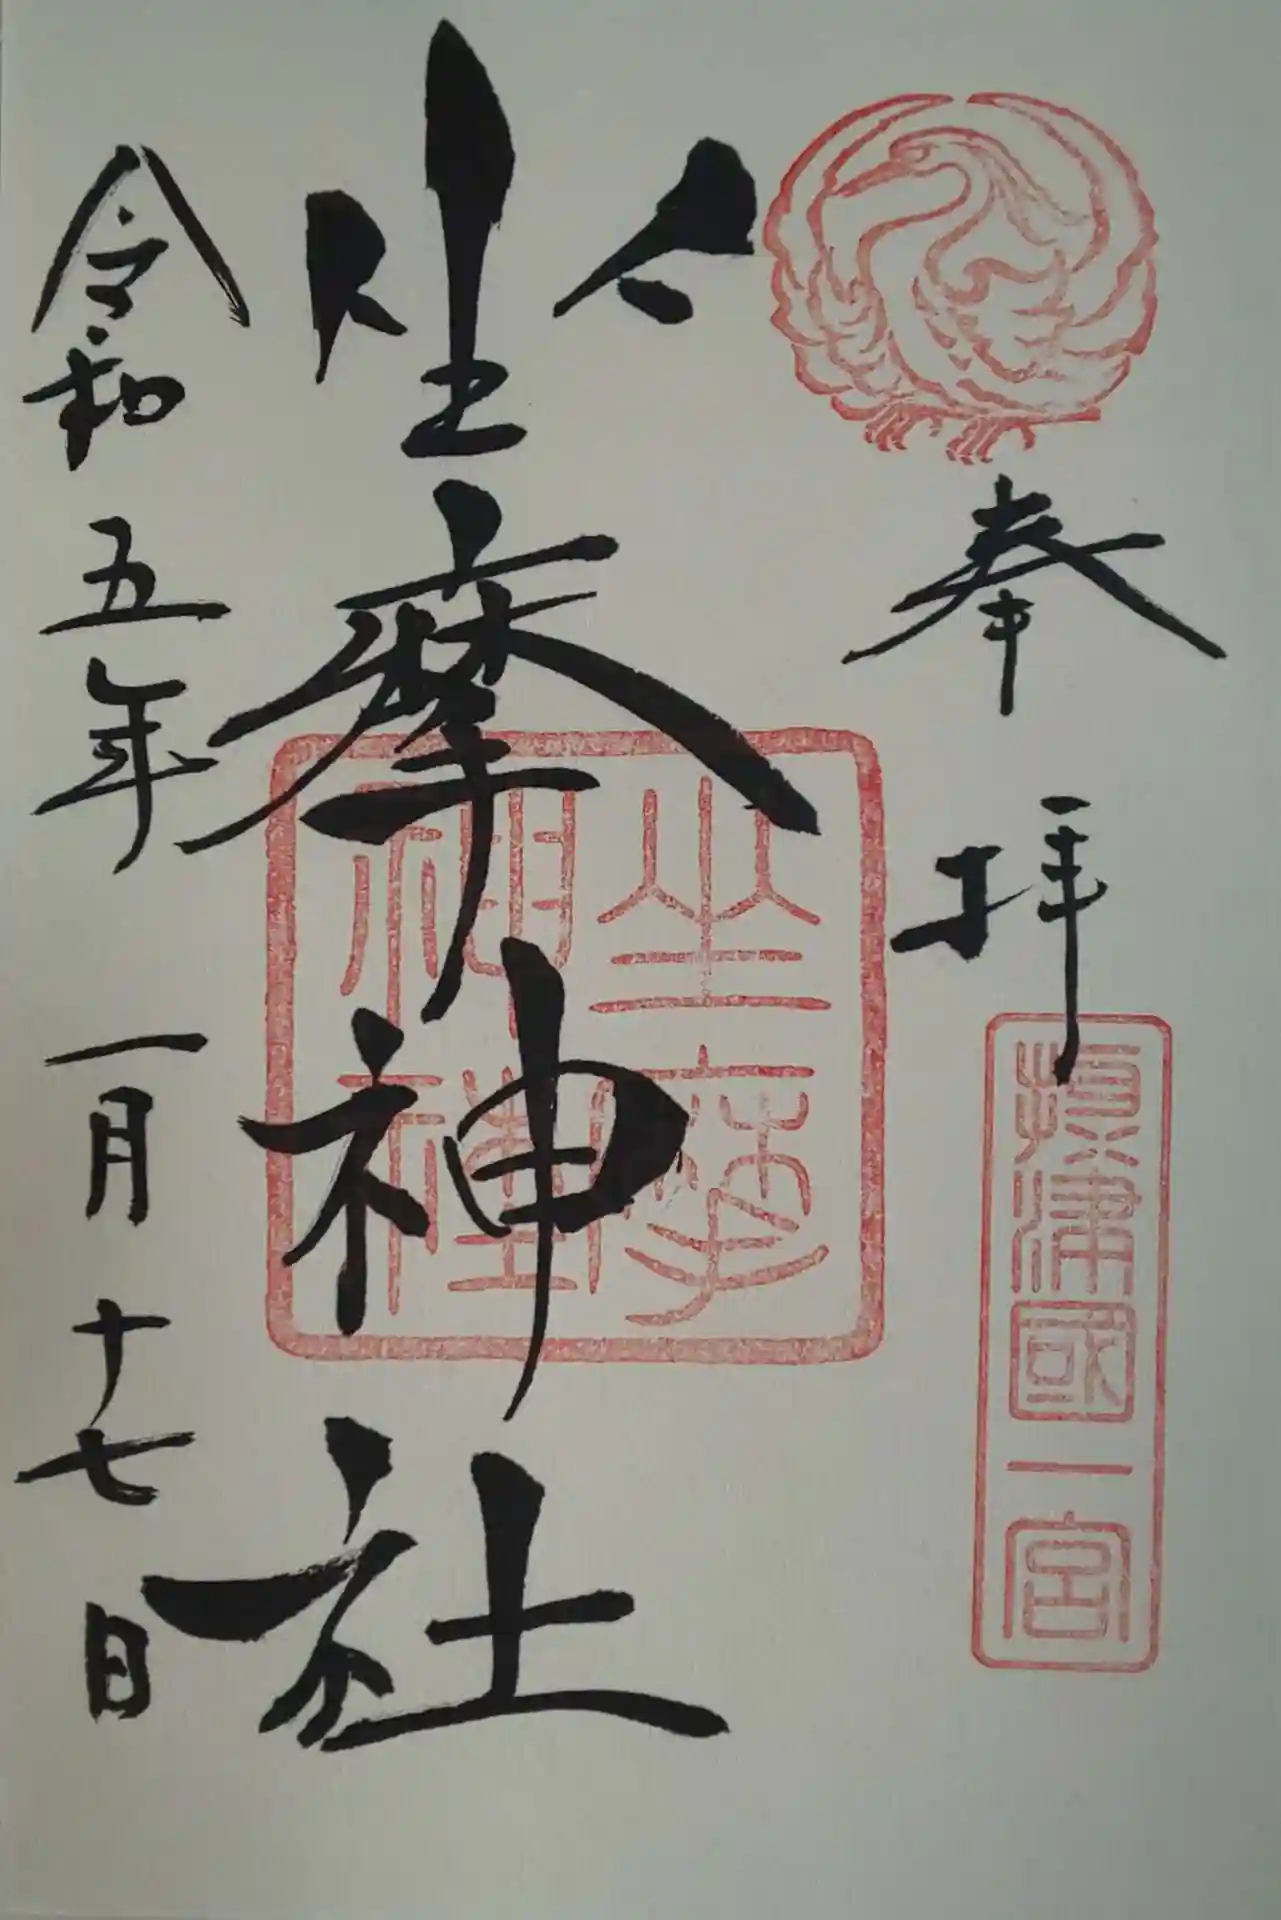 奉拝
攝津國一宮
坐摩神社
坐摩
神社
令和五年一月十七日